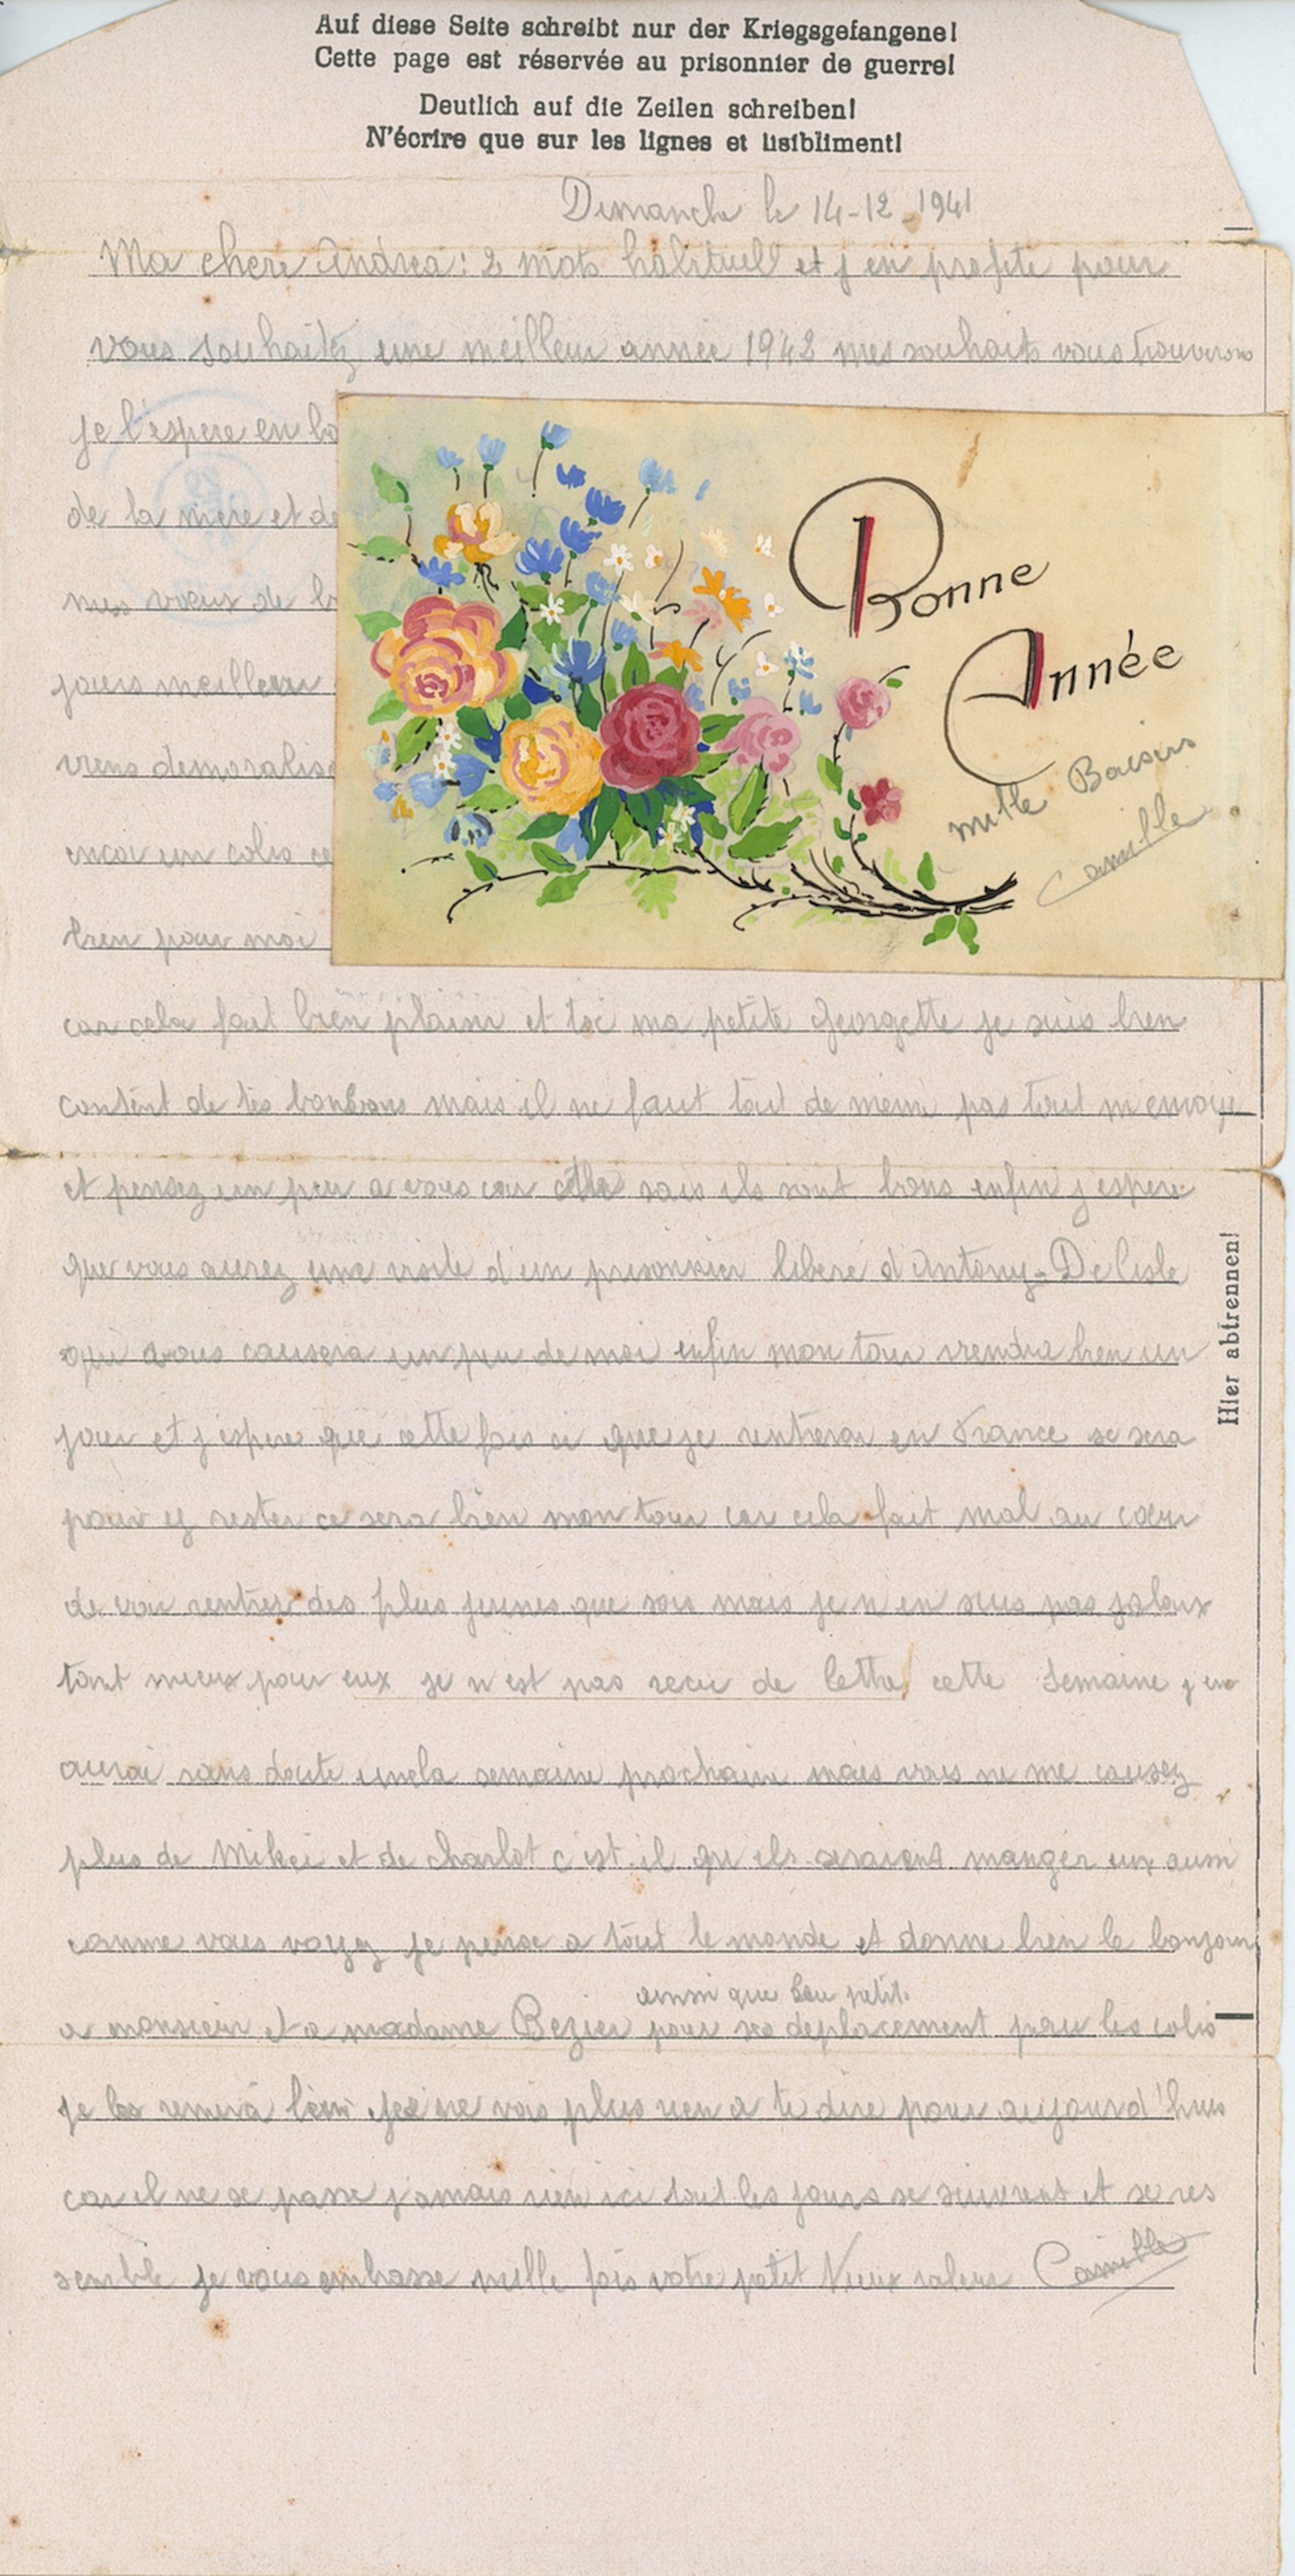 Auf diese Seite schreibt nur der Kriegsgefangene!
Cette page est réservée au prisonnier de guerre!
Deutlich auf die Zeilen schreiben!
N'écrire que sur les lignes et lisibliment!
Dimanche le 14-12-1941
Ma chere Andrea: 2 mots habituell et j'en profite pour
vous souhaitez une meilleur année 1942 mes souhaits vous trouverons
je l'espere en bo
de la mere et de
mes vœux de b
jours meilleur
viens demoralise
encor un colis ce
bien pour moi
Bonne
Année
mille Baisers
Camille
car cela fait bien plaisir et toi ma petite Georgette je suis bien
content de tes bonbons mais il ne faut tout de meme pas tout m'envoye
et pensez un peu a vous car sais ils sont bons enfin j'espere
que vous aurez une visite d'un prisonnier libéré d'Antony = Delisle
qui vous causera un peu de moi enfin mon tour viendra bien un
jour et j'espere que cette fois ci que je rentrerai en France se sera
pour y rester ce sera bien mon tour car cela fait mal au cœur
de voir rentrer des plus jeunes que sois mais je n'en suis pas jaloux
tant mieux pour eux je n'est pas recu de lettre cette semaine j'en
aurai sans doute une la semaine prochaine mais vous ne me causez
plus de Mikei et de charlot c'est il qu'ils seraient manger eux aussi
comme vous voyez je pense a tout le monde et donne bien le bonjour
ainsi que petit
a monsieur et a madame Bezier pour ses deplacement pour les colis
je les je ne vois plus rien a te dire pour aujourd'huis
car il ne se passe jamais rien ici tout les jours se suivent et se res
semble je vous embrasse mille fois votre petit Vieux Camille
Hier abtrennen!